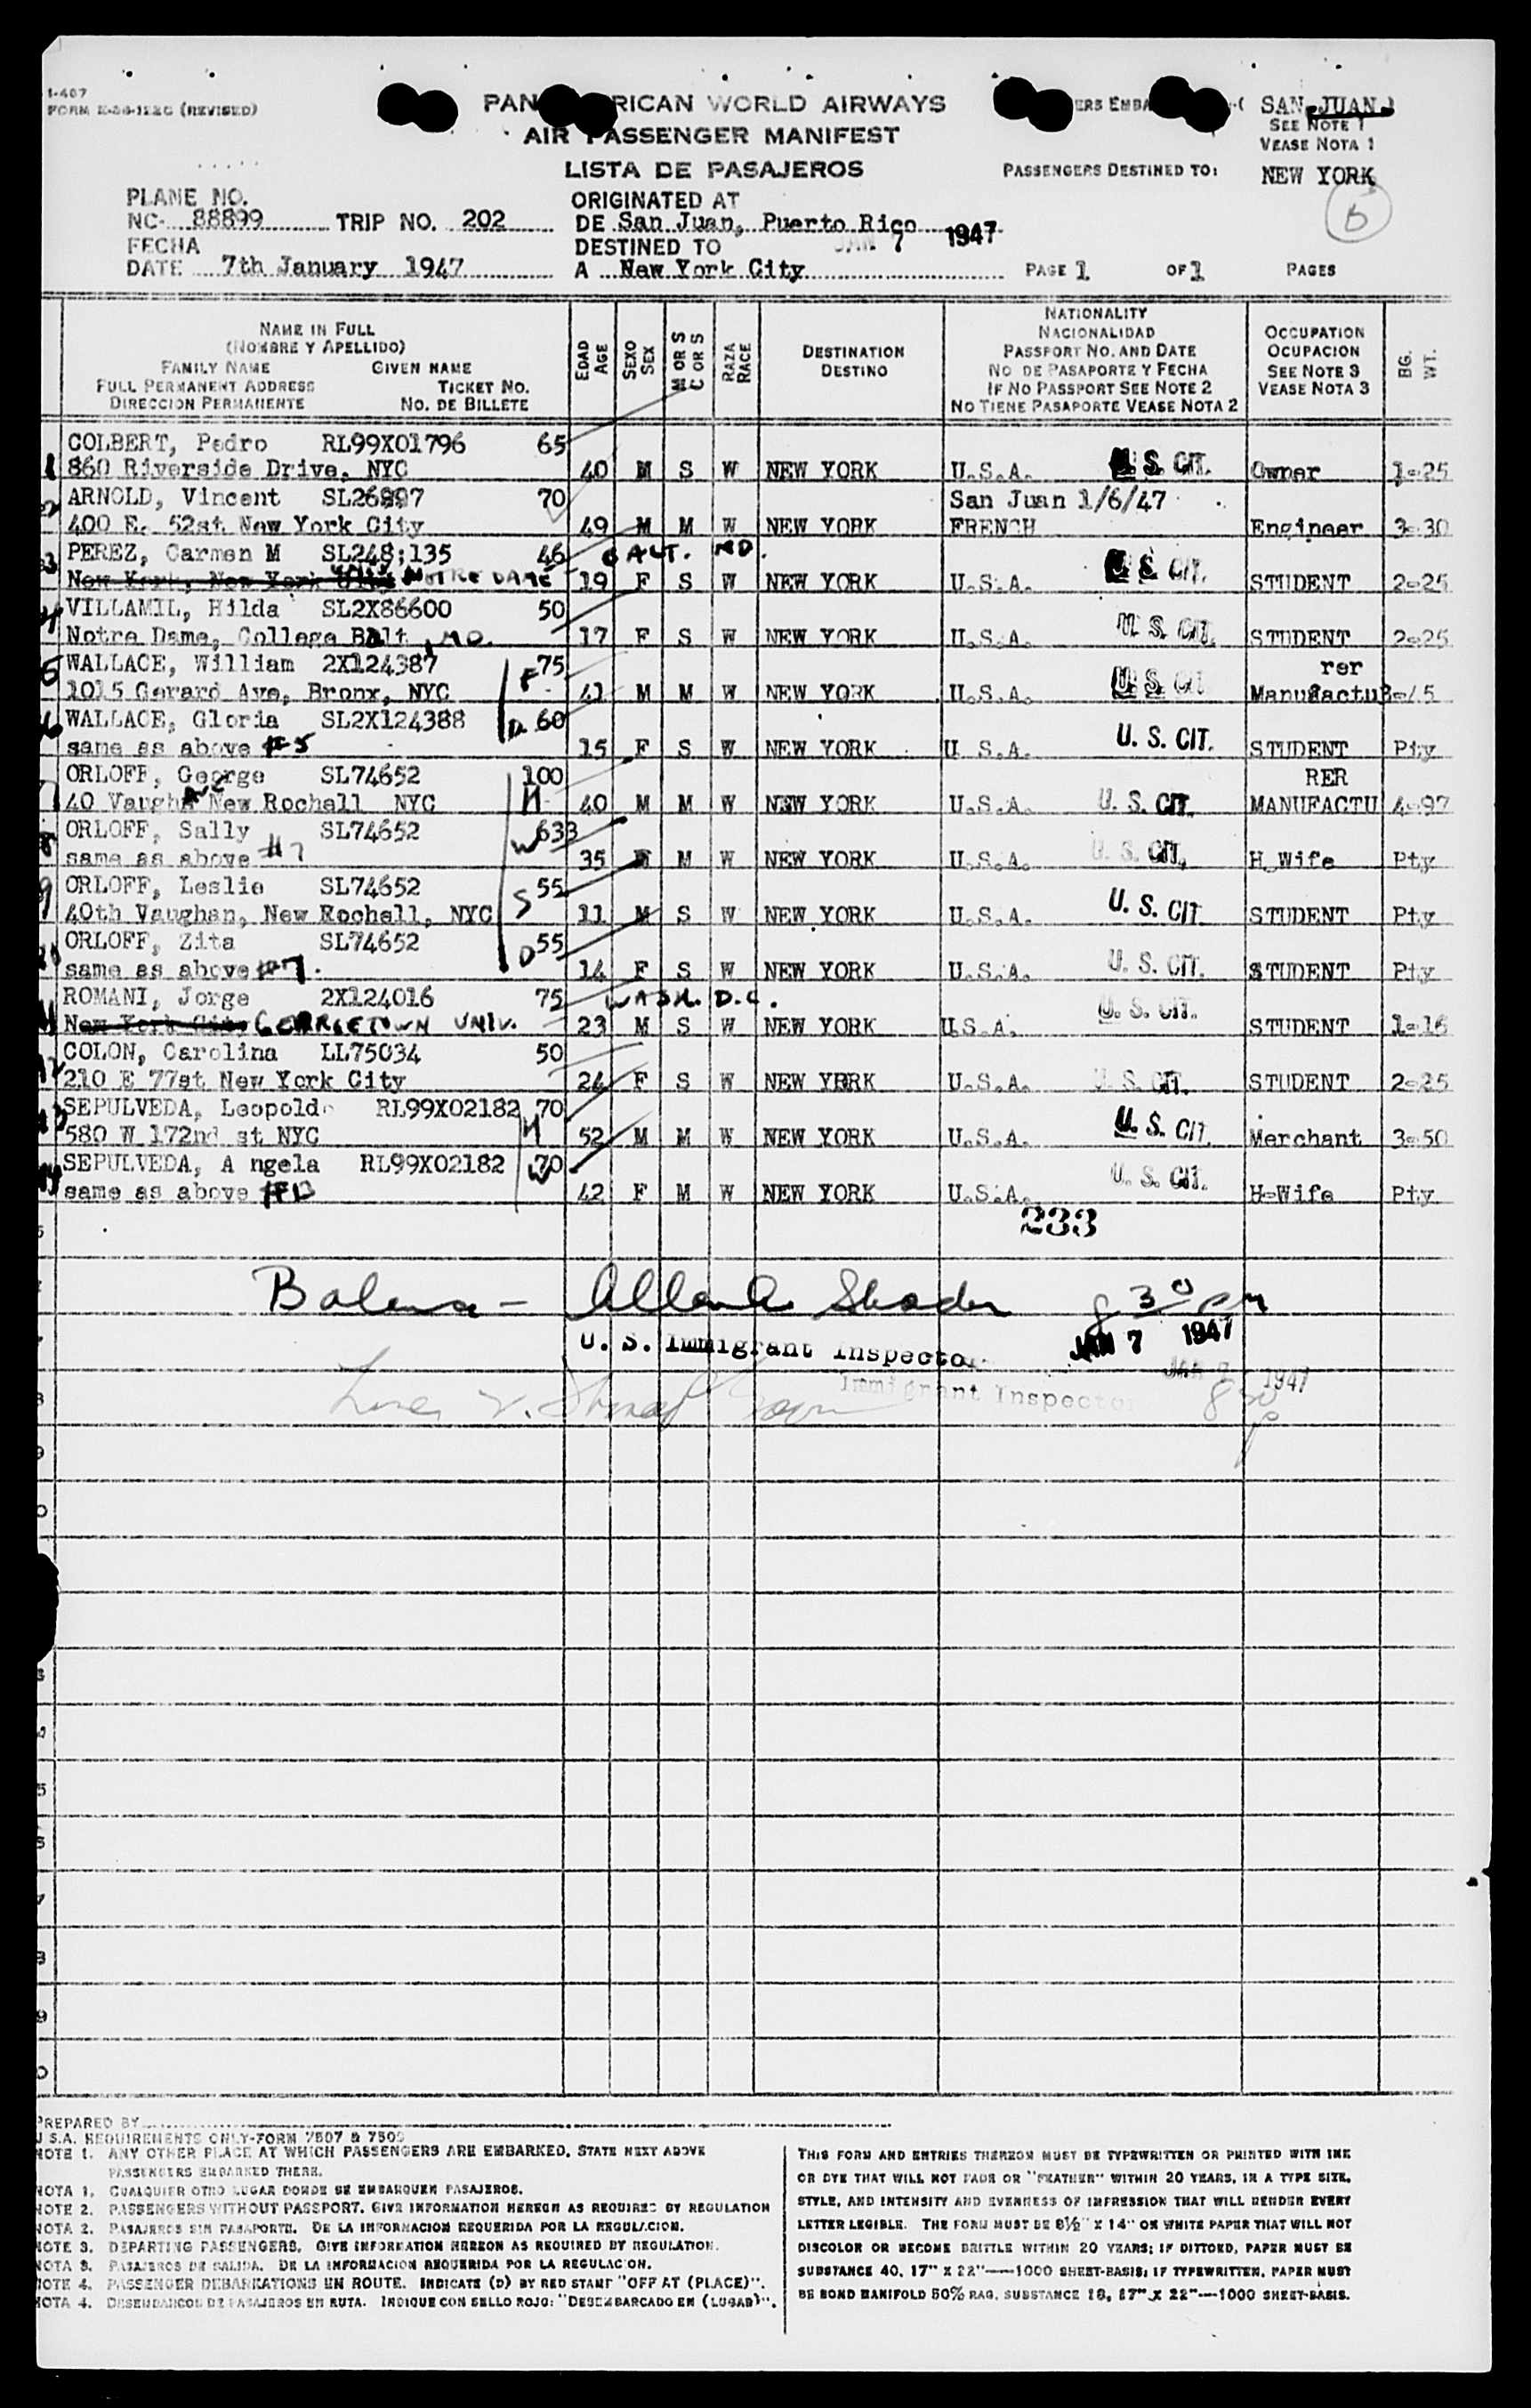 I-407
FORM E-36-122C (REVISED)
PAN RICAN WORLD AIRWAYS
AIR PASSENGER MANIFEST
LISTA DE PASAJEROS
ERS EMBA
SAN JUAN
SEE NOTE 1
VEASE NOTA 1
PASSENGERS DESTINED TO: NEW YORK
B
PLANE NO.
NC- 88899 TRIP NO. 202
ORIGINATED AT
DE San Juan, Puerto Rico
FECHA
DATE 7th January 1947
DESTINED TO
A New York City
JAN 7 1947
PAGE 1 OF 1 PAGES
NAME IN FULL
(NOMBRE Y APELLIDO)
FAMILY NAME GIVEN NAME
FULL PERMANENT ADDRESS TICKET NO.
DIRECCION PERMANENTE NO. DE BILLETE
EDAD
AGE
SEXO
SEX
M OR S
C OR S
RAZA
RACE
DESTINATION
DESTINO
NATIONALITY
NACIONALIDAD
PASSPORT NO. AND DATE
NO DE PASAPORTE Y FECHA
IF NO PASSPORT SEE NOTE 2
NO TIENE PASAPORTE VEASE NOTA 2
OCCUPATION
OCUPACION
SEE NOTE 3
VEASE NOTA 3
BG.
WT.
COLBERT, Pedro RL99X01796 65
1 860 Riverside Drive, NYC 40 M S W NEW YORK U.S.A. U. S. CIT. Owner 1-25
ARNOLD, Vincent SL26897 70 San Juan 1/6/47
2 400 E. 52st New York City 49 M M W NEW YORK FRENCH Engineer 3-30
PEREZ, Carmen M SL248;135 46 BALT. MD.
3 New York, New York NOTRE DAME 19 F S W NEW YORK U.S.A. U. S. CIT. STUDENT 2-25
VILLAMIL, Hilda SL2X86600 50
4 Notre Dame, College Balt, MD. 17 F S W NEW YORK U.S.A. U. S. CIT. STUDENT 2-25
WALLACE, William 2X124387 F 75 rer
5 1015 Gerard Ave, Bronx, NYC 41 M M W NEW YORK U.S.A. U. S. CIT Manufactu 3-45
WALLACE, Gloria SL2X124388 D 60
6 same as above #5 15 F S W NEW YORK U.S.A. U. S. CIT. STUDENT Pty
ORLOFF, George SL74652 100 RER
7 40 Vaughn Ave New Rochell NYC H 40 M M W NEW YORK U.S.A. U. S. CIT. MANUFACTU 4-97
ORLOFF, Sally SL74652 W 633
8 same as above #7 35 F M W NEW YORK U.S.A. U. S. CIT. H_Wife Pty
ORLOFF, Leslie SL74652 S 55
9 40th Vaughan, New Rochell, NYC 11 M S W NEW YORK U.S.A. U. S. CIT STUDENT Pty
ORLOFF, Zita SL74652 D 55
10 same as above #7. 14 F S W NEW YORK U.S.A. U. S. CIT. STUDENT Pty
ROMANI, Jorge 2X124016 75 WASH. D.C.
11 New York City GEORGETOWN UNIV. 23 M S W NEW YORK U.S.A. U. S. CIT. STUDENT 1-16
COLON, Carolina LL75034 50
12 210 E 77st New York City 24 F S W NEW YORK U.S.A. U. S. CIT. STUDENT 2-25
SEPULVEDA, Leopoldo RL99X02182 70
13 580 W 172nd st NYC H 52 M M W NEW YORK U.S.A. U. S. CIT. Merchant 3-50
SEPULVEDA, A ngela RL99X02182 W 70
14 same as above #13 42 F M W NEW YORK U.S.A. U. S. CIT. H-Wife Pty
233
8 30 PM
U. S. Immigrant Inspector
JAN 7 1947
Immigrant Inspector
1947
PREPARED BY
U S.A. REQUIREMENTS ONLY-FORM 7507 & 7509
NOTE 1. ANY OTHER PLACE AT WHICH PASSENGERS ARE EMBARKED, STATE NEXT ABOVE
PASSENGERS EMBARKED THERE.
NOTA 1. CUALQUIER OTRO LUGAR DONDE SE EMBARQUEN PASAJEROS.
NOTE 2. PASSENGERS WITHOUT PASSPORT. GIVE INFORMATION HEREON AS REQUIRED BY REGULATION
NOTA 2. PASAJEROS SIN PASAPORTE. DE LA INFORMACION REQUERIDA POR LA REGULACION.
NOTE 3. DEPARTING PASSENGERS. GIVE INFORMATION HEREON AS REQUIRED BY REGULATION.
NOTA 3. PASAJEROS DE SALIDA. DE LA INFORMACION REQUERIDA POR LA REGULACION.
NOTE 4. PASSENGER DEBARKATIONS EN ROUTE. INDICATE (D) BY RED STAMP "OFF AT (PLACE)".
NOTA 4. DESEMBARCOS DE PASAJEROS EN RUTA. INDIQUE CON SELLO ROJO: "DESEMBARCADO EN (LUGAR)".
THIS FORM AND ENTRIES THEREON MUST BE TYPEWRITTEN OR PRINTED WITH INK
OR DYE THAT WILL NOT FADE OR "FEATHER" WITHIN 20 YEARS, IN A TYPE SIZE,
STYLE, AND INTENSITY AND EVENNESS OF IMPRESSION THAT WILL RENDER EVERY
LETTER LEGIBLE. THE FORM MUST BE 8½" X 14" ON WHITE PAPER THAT WILL NOT
DISCOLOR OR BECOME BRITTLE WITHIN 20 YEARS; IF DITTOED, PAPER MUST BE
SUBSTANCE 40, 17" X 22"—1000 SHEET-BASIS; IF TYPEWRITTEN, PAPER MUST
BE BOND MANIFOLD 50% RAG, SUBSTANCE 18, 17" X 22"—1000 SHEET-BASIS.